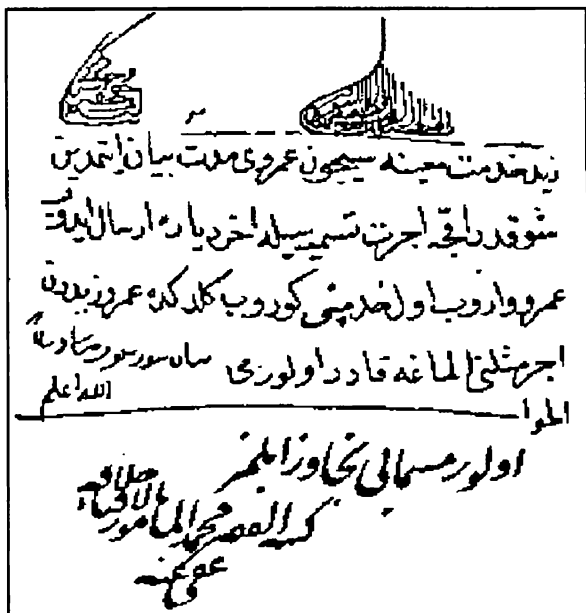 زيد خدمت معينه سيچون عمروى مدت بيان ايتمدين
شو قدر اقچه اجرت تسميه سيله اخر دياره ارسال ايدوب
عمرو واروب اول خدمتى كوروب كلدكده عمرو زيددن
اجر مثلنى الماغه قادر اولورمى
الله اعلم
الجواب
اولور مسمايى تجاوز ايلمز
كتبه الفقير محمد المأمور
عفى عنه